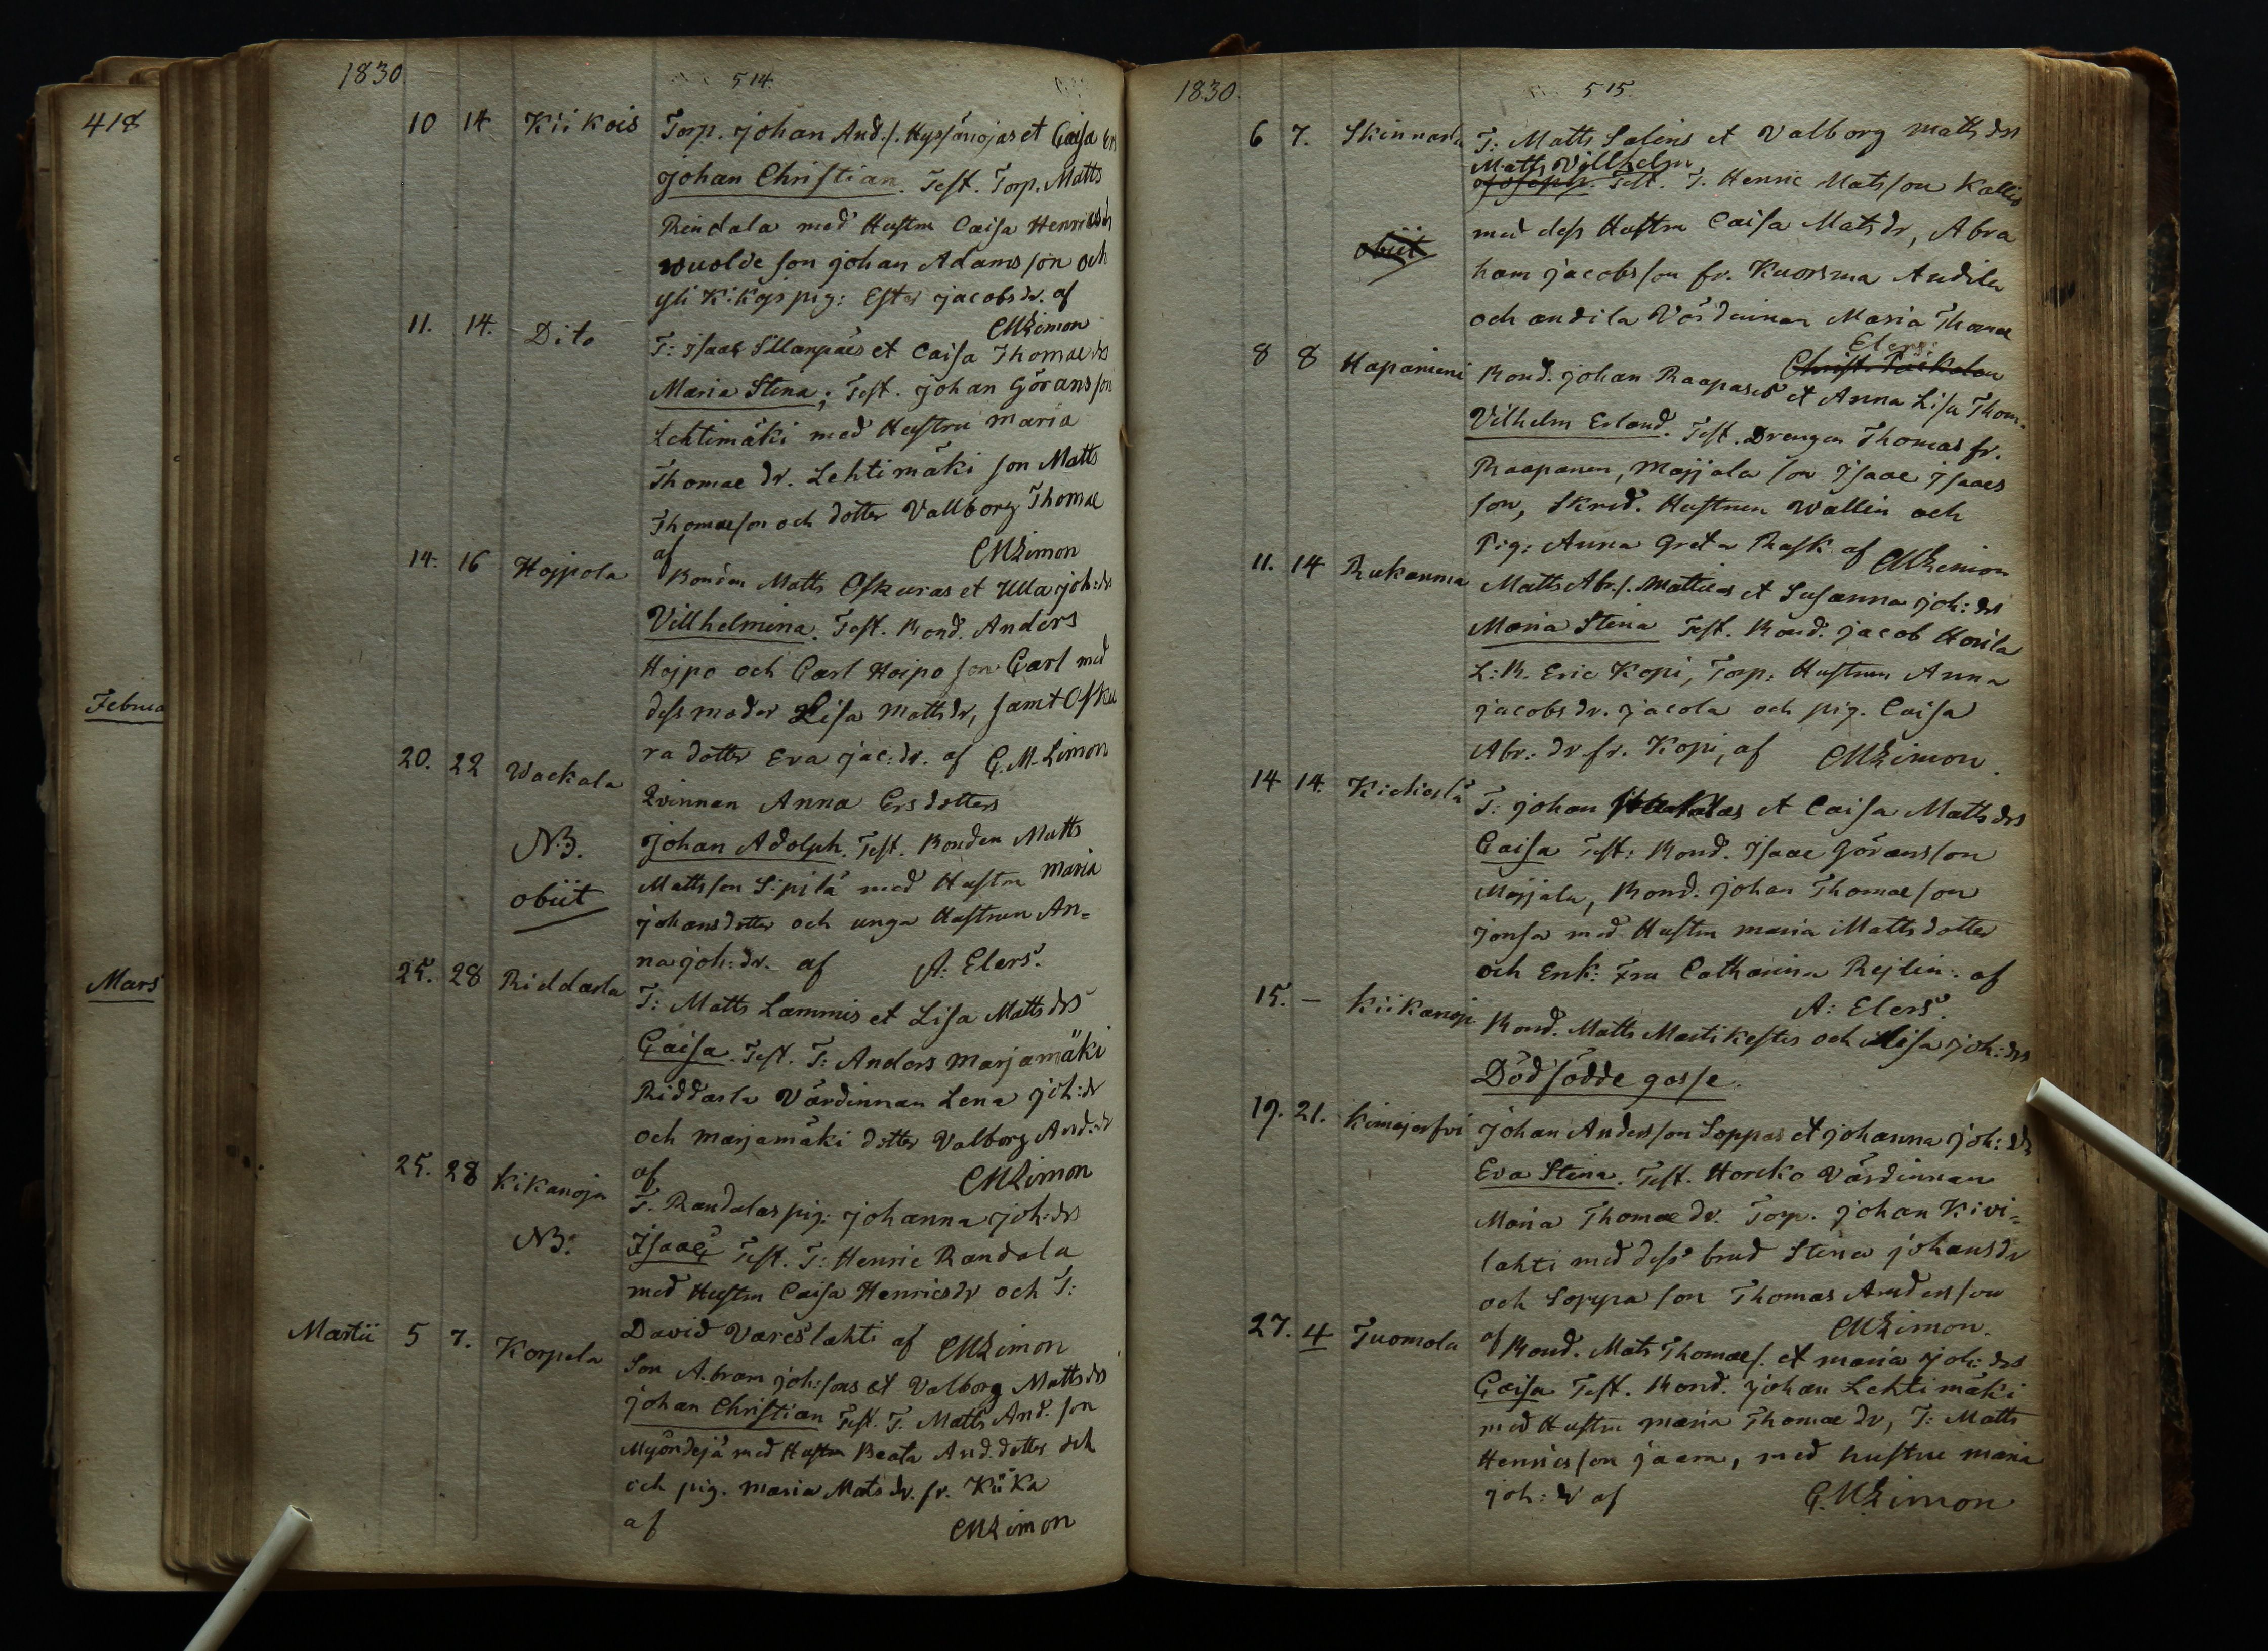 418
Februa
Mars
1830
514.
10 14 Kiikois Torp. Johan And:s. Hyssänojas et Caisa Ers
Johan Christian. Test. Torp. Matts
Rindala med Hustru Caisa Henricsdr
wuolde son Johan Adamsson och
yli Kikojs pig: Ester Jacobsdr. af
CMLimon
11. 14. Dito T: Isaac Sillanpäes et Caisa Thomaedrs
Maria Stina; Test. Johan Göransson
Lehtimäki med Hustru Maria
Thomae dr. Lehtimäki son Matts
Thomaeson och dotter Vallborg Thomae
af CMLimon
14. 16 Hojpola Bonden Matts Oskuras et Ulla Joh:dr
Villhelmina. Test. Bond. Anders
Hojpo och Carl Hoipo son Carl med
dess moder Lisa Mattsdr, samt Osku
ra dotter Eva Jac:dr. af C.M. Limon
20. 22 Wackala Qvinnan Anna Ersdotters
NB. Johan Adolph. Test. Bonden Matts
obiit Mattsson Sipilä med Hustru Maria
Johansdotter och unga Hustrun An=
na Joh:dr. af A: Elers.
25. 28 Riddarla T: Matts Lammis et Lisa Mattsdrs
Caisa. Test. T: Anders Marjamäki
Riddarla Värdinnan Lena Joh:dr
och Marjamäki dotter Valborg And:dr
af CMLimon
25. 28 Kikanoja T. Randalas pig: Johanna Joh:drs
NB. Isaac Test. T: Henric Randala
med Hustru Caisa Henricsdr och T:
David Vareslahti af CMLimon
Martii 5 7. Korpela Son Abram Joh:sons et Valborg Mattsdrs
Johan Christian Test. T. Matts And.son
Myöndejä med Hustru Beata And.dotter och
och pig. Maria Matsdr. fr. Kiika
af CMLimon
1830.
515.
6 7. Skinnarla T: Matts Salins et Valborg Mattsdrs
Matts Villhelm
Joseph. Test. T. Henric Matsson Kallis
med dess Hustru Caisa Matsdr, Abra
obiit ham Jacobsson fr. Kuorsma Andila
och andila Värdinnan Maria Thomae
Elers:
8 8 Hapaniemi Bond. Johan Raapases et Anna Lisa Thom.
Vilhelm Erland. Test. Drengen Thomas fr.
Raapanen, Mojjala son Isaac Isaacs
son, Skred. Hustrun Wallin och
Pig: Anna Greta Rask af CMLimon
11. 14 Rukanma Matts Abr:s. Mattilas et Susanna Joh:drs
Maria Stina Test. Bond. Jacob Horila
L:B. Eric Kopi, Torp: Hustrun Anna
Jacobsdr. Jacola och pig. Caisa
Abr: dr fr. Kopi, af CMLimon.
14 14. T: Johan et Caisa Mattsdrs
Caisa Test: Bond. Isaac Göransson
Mojjala, Bond. Johan Thomaeson
Jonsa med Hustru Maria Mattsdotter
och Enk: Fru Catharina Rejlin. af
A: Elers.
15. – Kiikanoja Bond. Matts Martikestes och Lisa Joh:drs
Dödfödde gosse.
19. 21. Kimajerfvi Johan Andersson Soppas et Johanna Joh:drs
Eva Stina. Test. Horcko Värdinnan
Maria Thomae dr. Torp. Johan Kivi=
lahti med dess brud Stina Johansdr
och Soppa son Thomas Andersson
af CMLimon.
27. 4 Tuomola Bond. Mats Thomaes. et Maria Joh:drs
Caisa Test. Bond. Johan Lehtimäki
med Hustru Maria Thomae dr, T: Matts
Henricsson Jaern, med hustru Maria
Joh: dr af C.MLimon